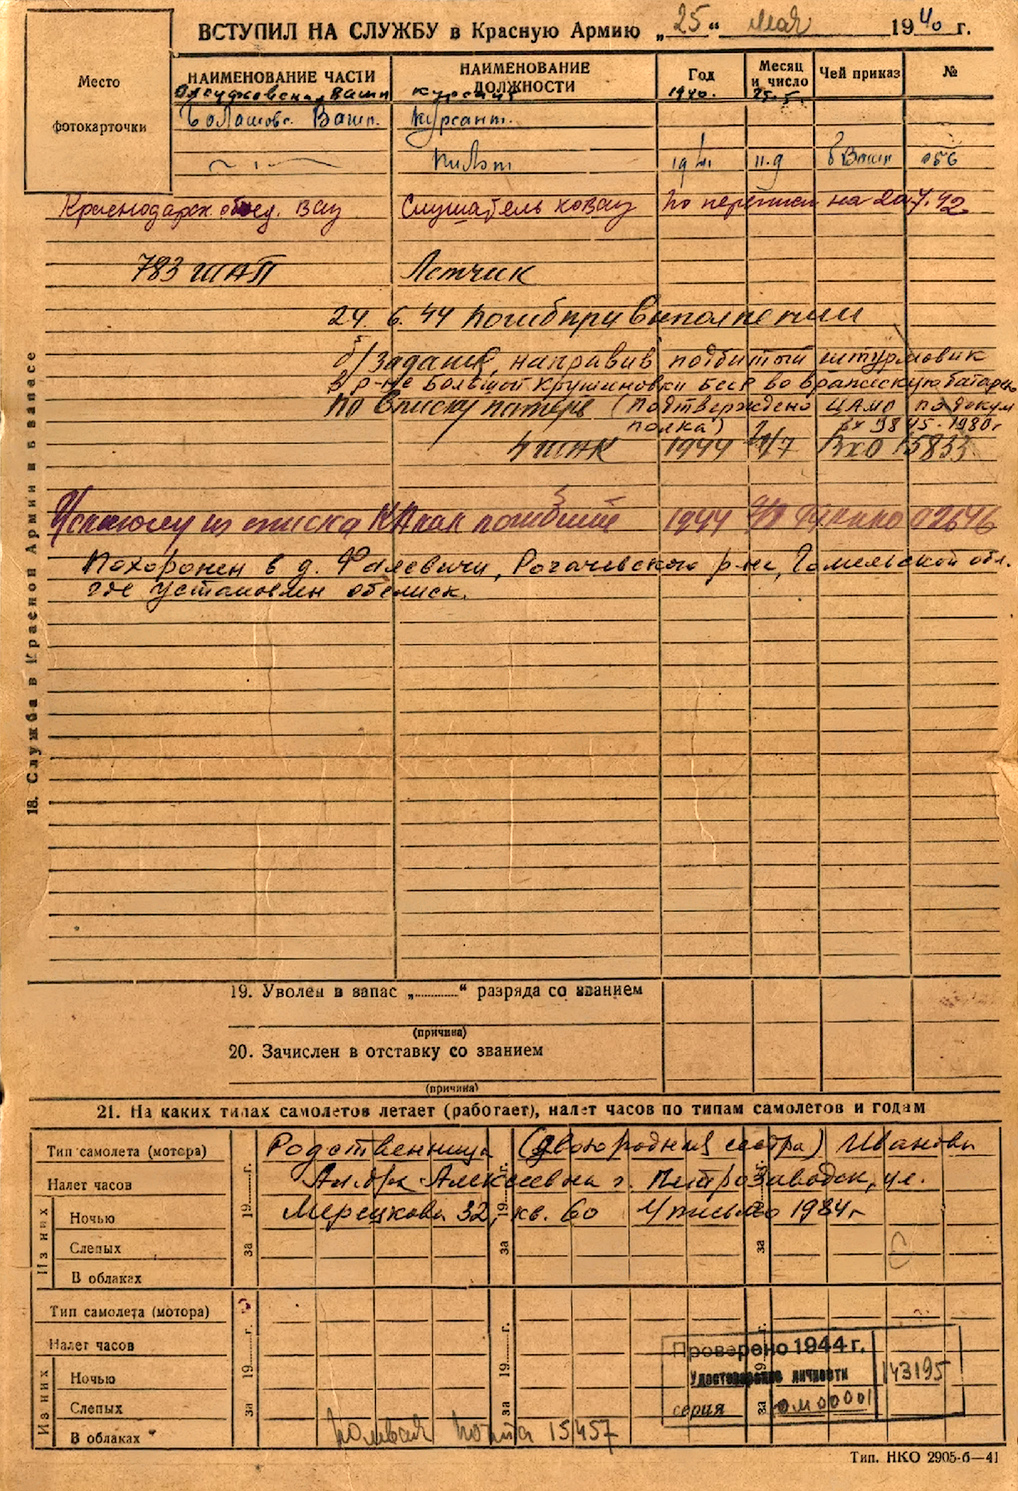 ВСТУПИЛ НА СЛУЖБУ в Красную Армию „25“ мая 1940 г.
Место
фотокарточки
НАИМЕНОВАНИЕ ЧАСТИ
НАИМЕНОВАНИЕ ДОЛЖНОСТИ
Год
Месяц и число
Чей приказ
№
ВАШП курсант 1940. 25.5.
Балашовс. Вашп. Курсант.
Пилот 1941 11.9 бВашп 056
Краснодарск. объед. ВАУ Слушатель КОВАУ по переписи на 20.4.42
783 ШАП Летчик
24. 6. 44 Погиб при выполнении
б/задания, направив подбитый штурмовик
в р-не Большой Крушиновки БССР во вражескую батарею
По списку потерь (Подтверждено ЦАМО по докум
полка) вх 9845-1980г
4 ШАК 1944 ВхО 15833
Исключен из списка КА как погибший 1944 ГУК НКО 02646
Похоронен в д. Фалевичи, Рогачевского р-на, Гомельской обл.
где установлен обелиск.
18. Служба в Красной Армии и в запасе
19. Уволен в запас „............“ разряда со званием
(причина)
20. Зачислен в отставку со званием
(причина)
21. На каких типах самолетов летает (работает), налет часов по типам самолетов и годам
Тип самолета (мотора) Родственница (двоюродная сестра) Иванова
Налет часов Алексеевна г. Петрозаводск, ул.
Ночью Мерецкова 32, кв. 60 1984г
Слепых
В облаках
Из них
за 19......г.
за 19......г.
за 19......г.
Тип самолета (мотора)
Налет часов
Ночью
Слепых
В облаках
Из них
за 19......г.
за 19......г.
за 19......г.
Проверено 1944 г.
Удостоверение личности 143195
серия ОМ 00001
полевая почта 15457
Тип. НКО 2905-б—41